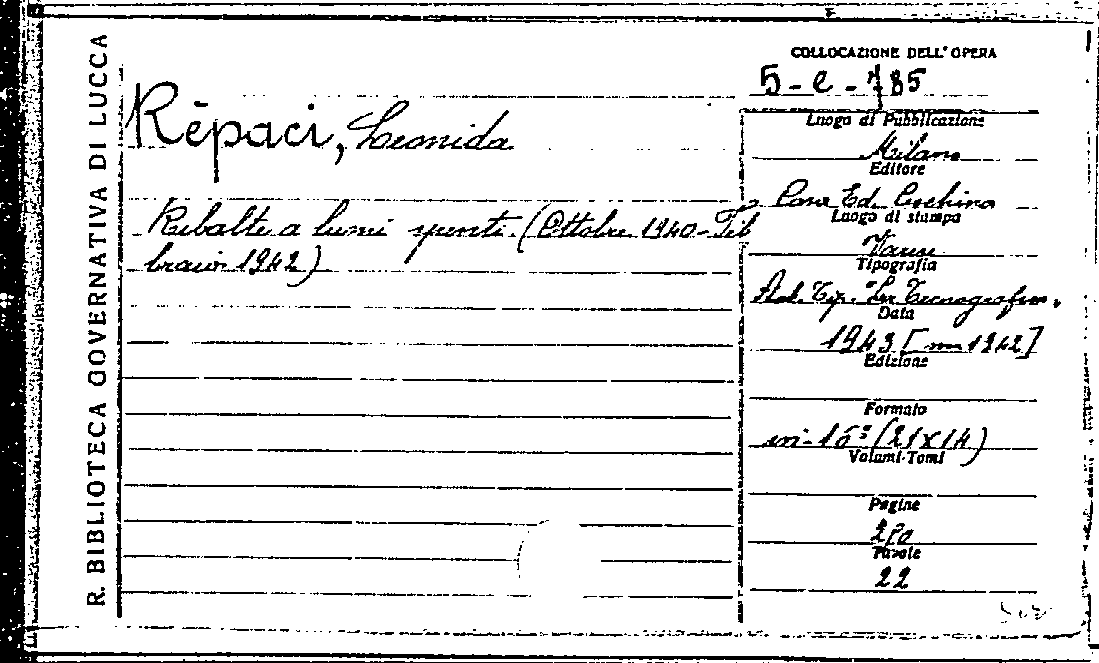 R. BIBLIOTECA GOVERNATIVA DI LUCCA
COLLOCAZIONE DELL' OPERA
5-e-785
Rèpaci, Leonida
Luogo di Pubblicazione
Milano
Editore
Casa Ed. Ceschina
Ribalte a lumi spenti. (Ottobre 1940-Feb
braio 1942)
Luogo di stampa
Varese
Tipografia
Tip. "La Tecnografica"
Data
1943 [ 1942]
Edizione
Formato
in-16º (21x14)
Volumi-Tomi
Pagine
Tavole
22